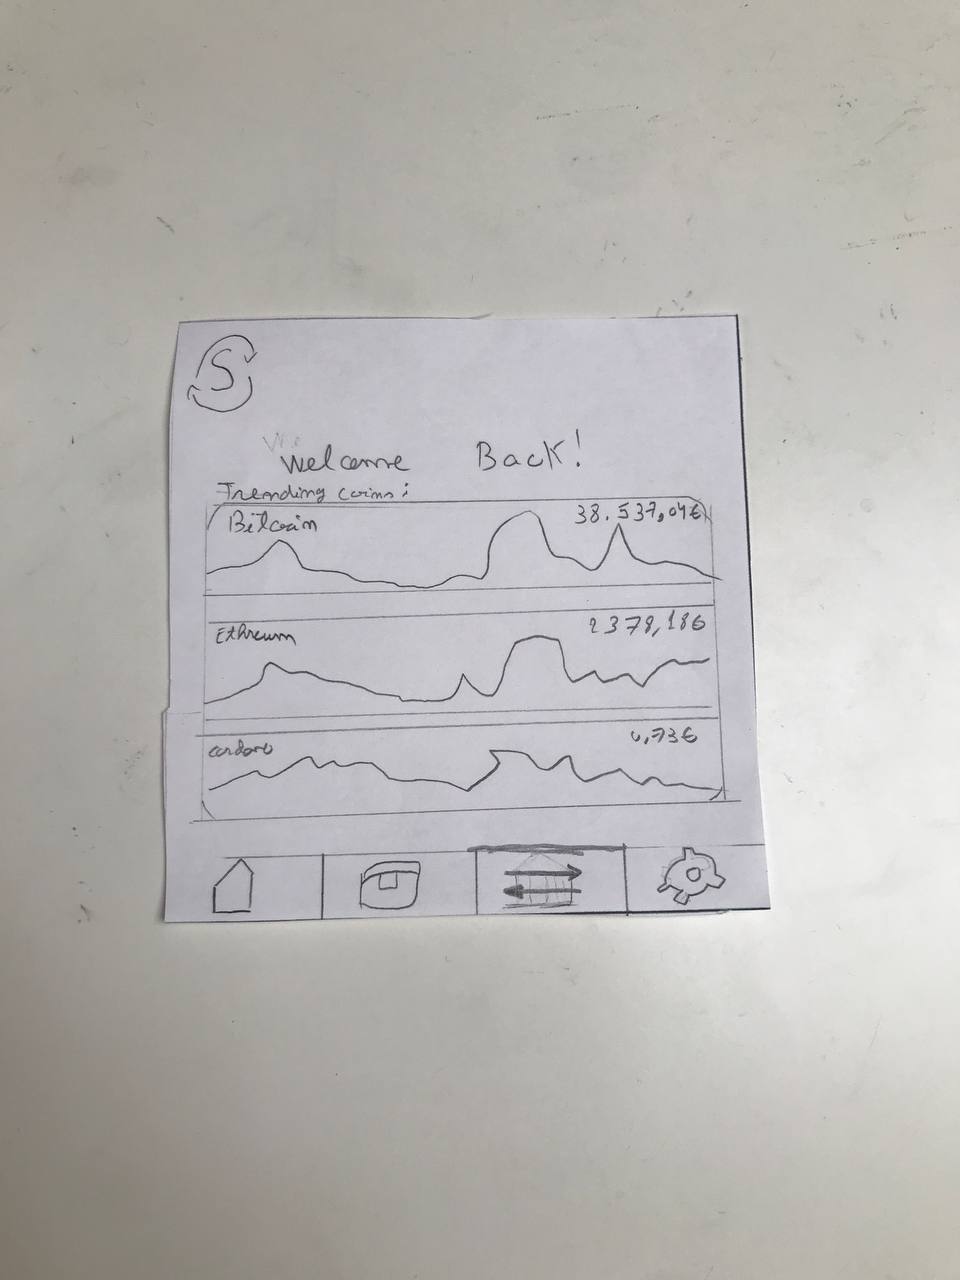 S
Welcome Back!
Trending coins:
Bitcoin 38.537,04€
Ethreum 2378,18€
cardano 0,73€